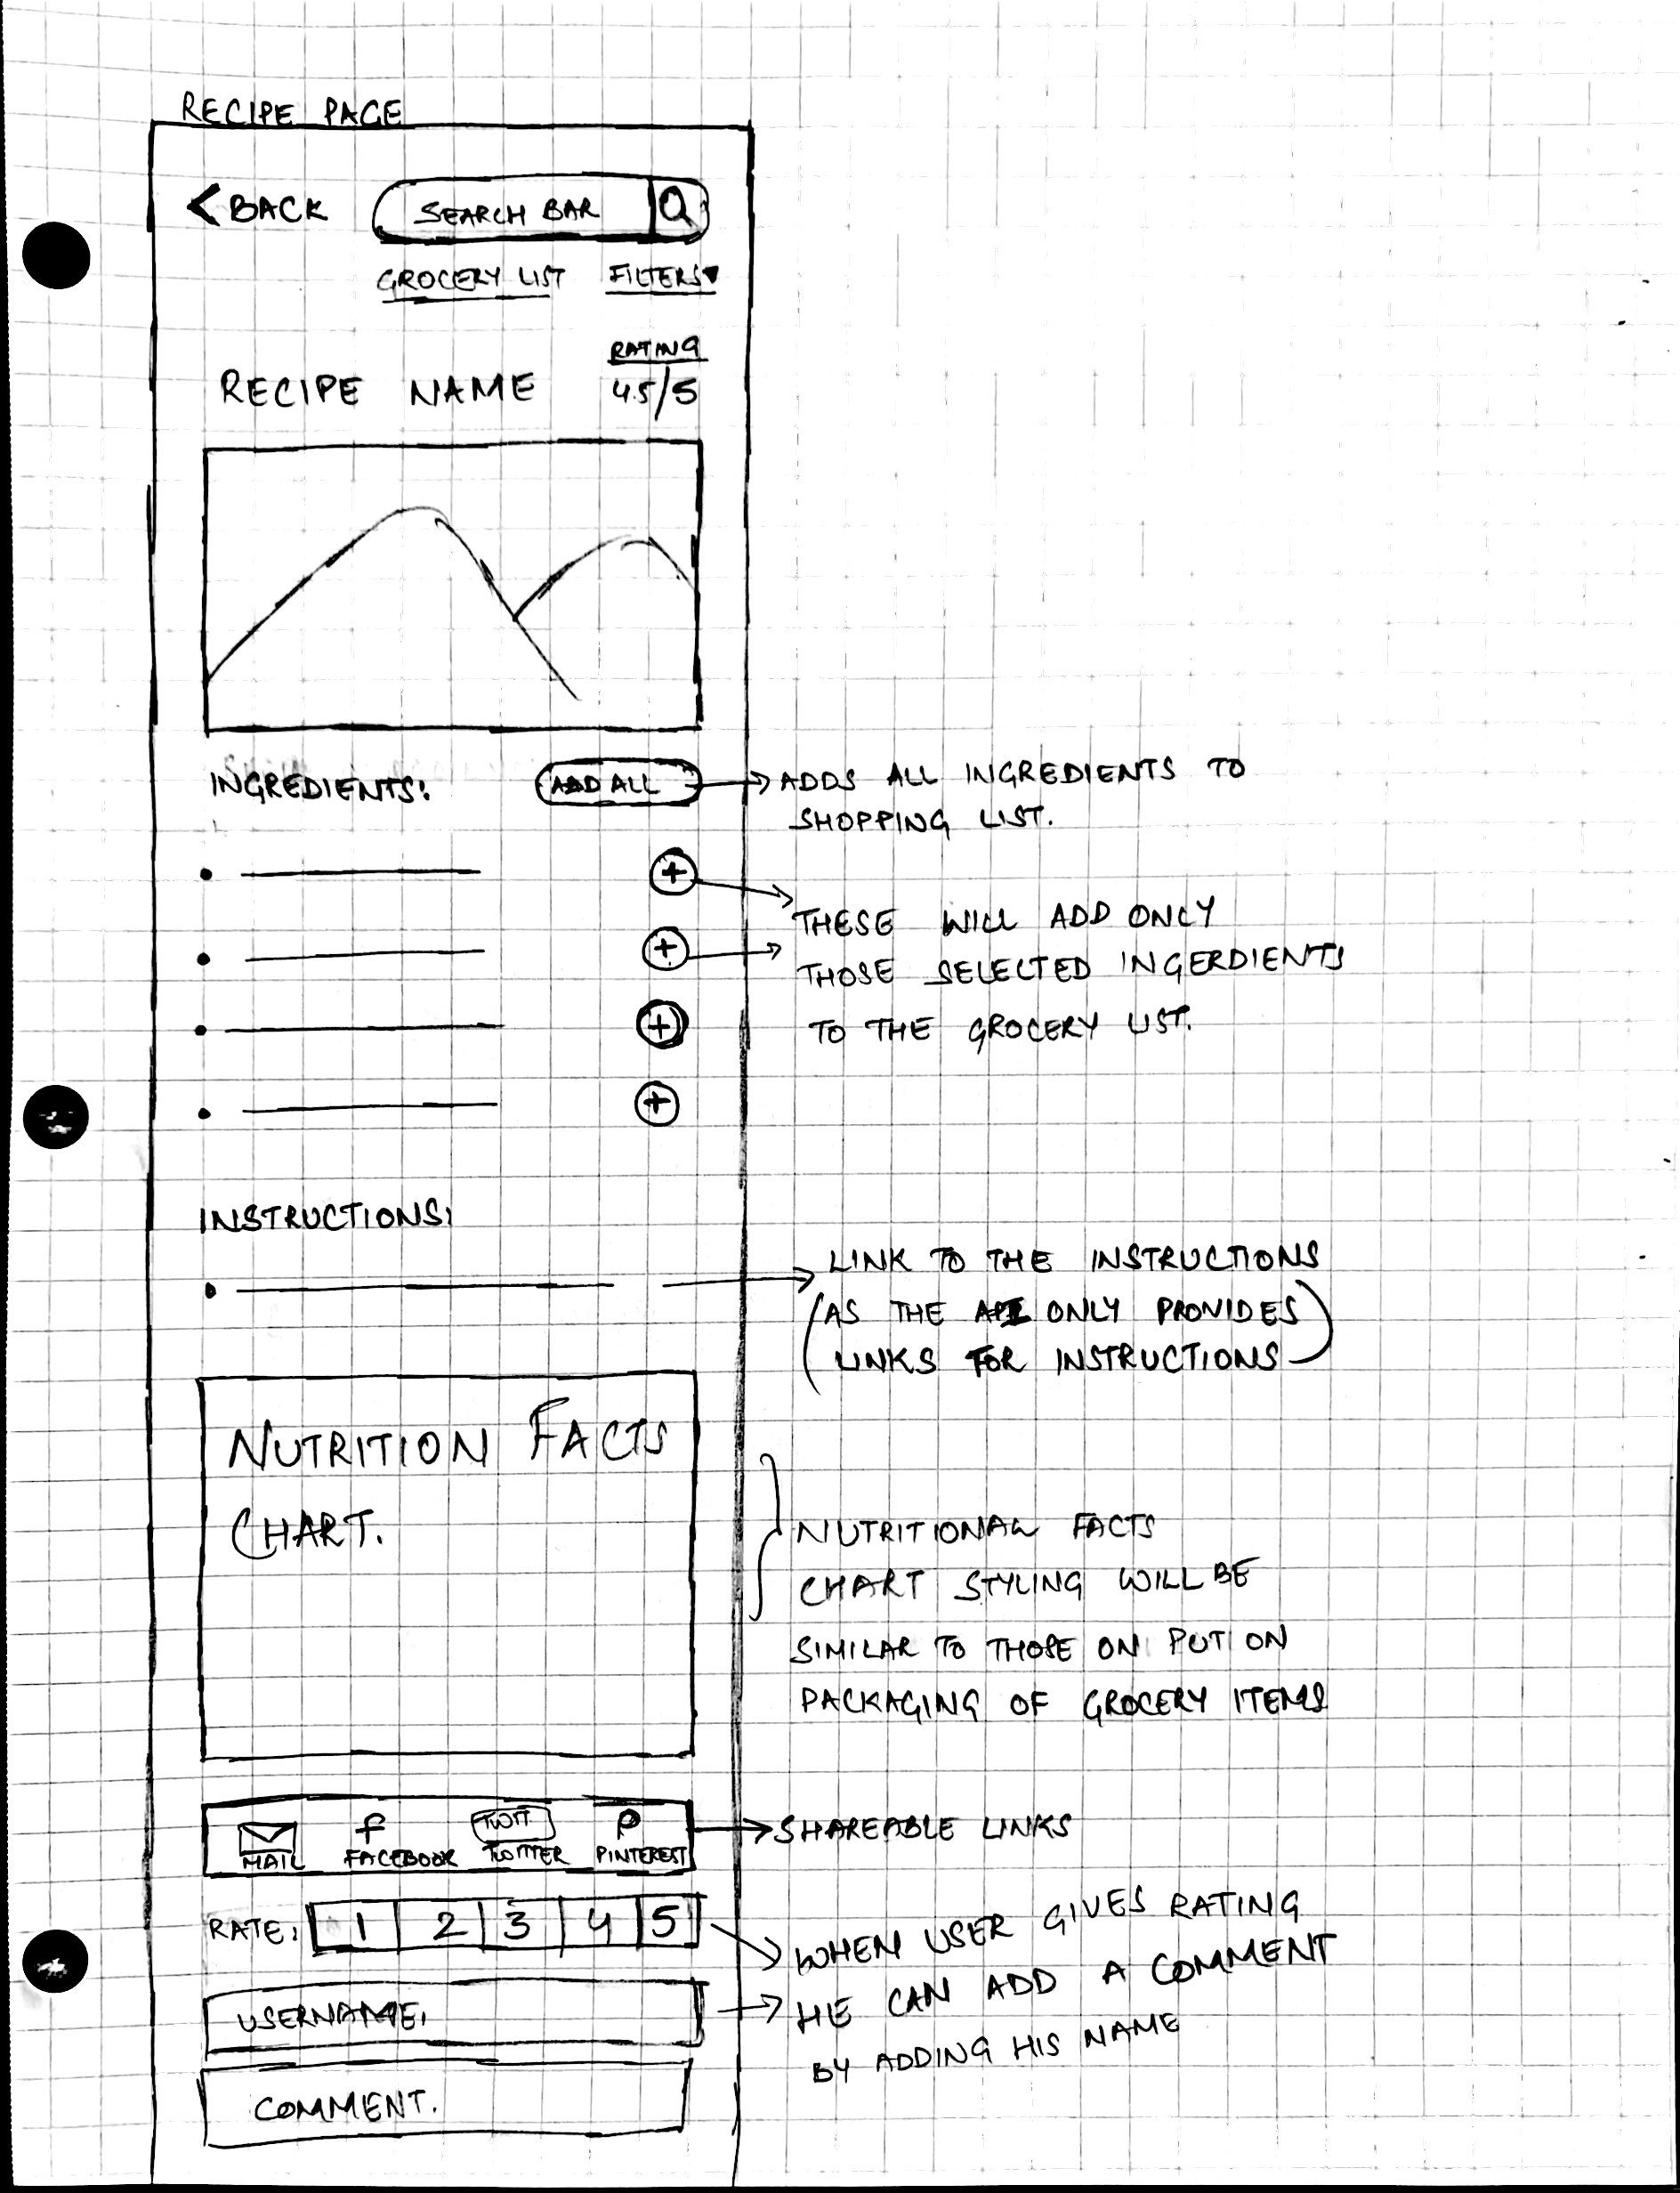 RECIPE PAGE
< BACK
SEARCH BAR
GROCERY LIST FILTERS▼
RATING
RECIPE NAME 4.5/5
INGREDIENTS: ADD ALL
ADDS ALL INGREDIENTS TO
SHOPPING LIST.
+
+
+
+
THESE WILL ADD ONLY
THOSE SELECTED INGERDIENTS
TO THE GROCERY LIST.
INSTRUCTIONS:
LINK TO THE INSTRUCTIONS
(AS THE API ONLY PROVIDES
LINKS FOR INSTRUCTIONS)
NUTRITION FACTS
CHART.
NUTRITIONAL FACTS
CHART STYLING WILL BE
SIMILAR TO THOSE ON PUT ON
PACKAGING OF GROCERY ITEMS
f TWIT P
MAIL FACEBOOK TWITTER PINTEREST
SHAREABLE LINKS
RATE: 1 2 3 4 5
USERNAME:
COMMENT.
WHEN USER GIVES RATING
HE CAN ADD A COMMENT
BY ADDING HIS NAME